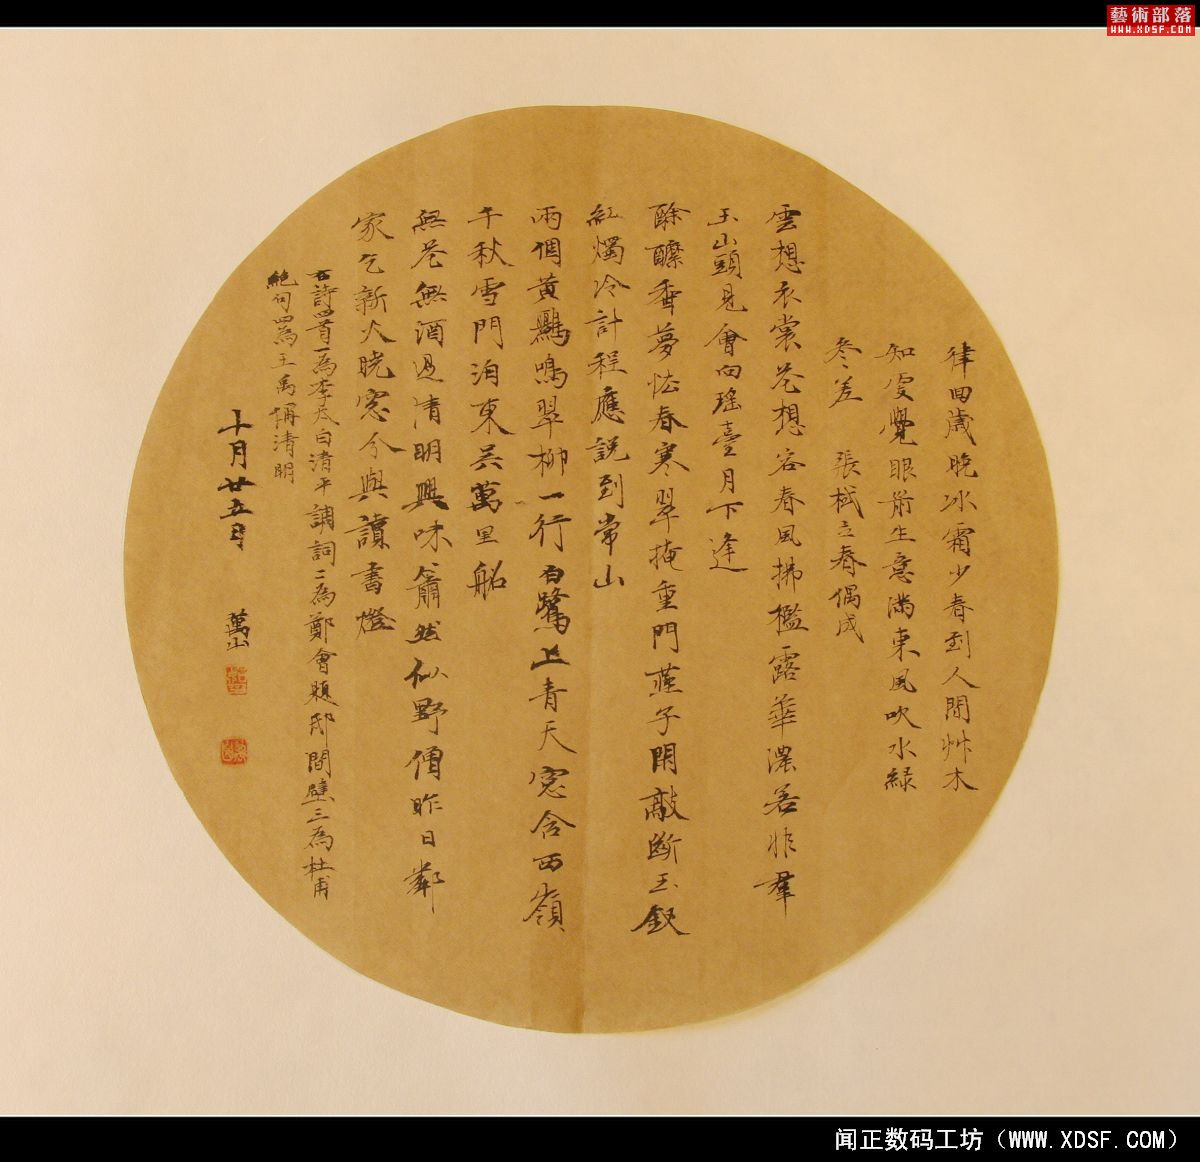 藝術部落
WWW.XDSF.COM
律回歲晚冰霜少春到人間艸木
知處覺眼前生意滿東風吹水緑
參差 張栻立春偶成
雲想衣裳花想容春風拂檻露華濃若非羣
玉山頭見會向瑤臺月下逢
酴醾香夢怯春寒翠掩重門燕子閑敲斷玉釵
紅燭冷計程應説到常山
兩個黃鸝鳴翠柳一行白鷺上青天窓含西嶺
千秋雪門泊東吳萬里船
無花無酒過清明興味蕭然似野僧昨日鄰
家乞新火曉窓分與讀書燈
右詩四首一為李太白清平調詞二為鄭會題邸間壁三為杜甫
絶句四為王禹偁清明
十月廿五日 萬山
闻正数码工坊（WWW.XDSF.COM）